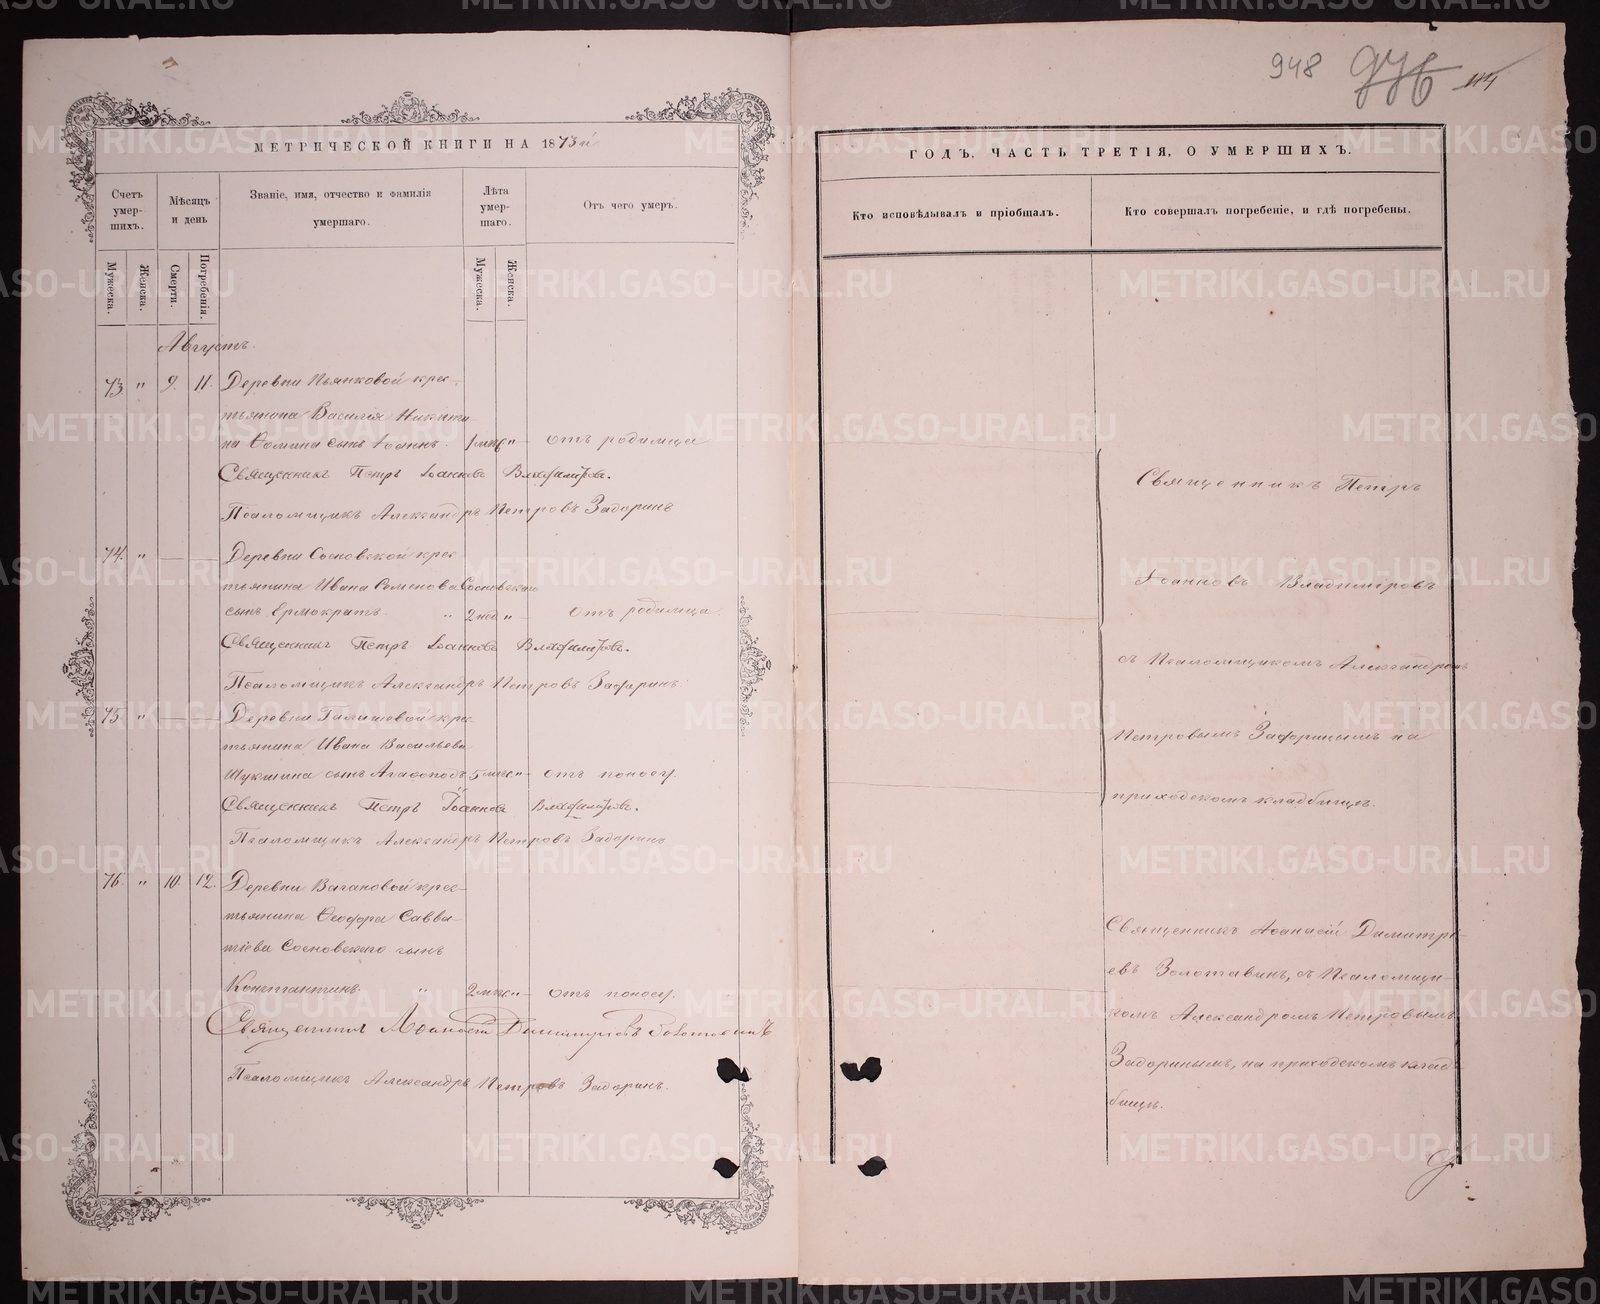 948
МЕТРИЧЕСКОЙ КНИГИ НА 1873й
Счетъ умер-шихъ.
Мѣсяцъ и день
Званіе, имя, отчество и фамилія умершаго.
Лѣта умер-шаго.
Отъ чего умеръ.
Мужеска.
Женска.
Смерти.
Погребенія.
Мужеска.
Женска.
Августъ.
73 " 9. 11. Деревни Пьянковой крес-
тьянина Василія Никити
на Ѳомина сынъ Іоаннъ. 1 мѣс " отъ родимца
Священникъ Петръ Іоанновъ Владиміровъ.
Псаломщикъ Александръ Петровъ Задоринъ
74. " — — Деревни Сосновской крес
тьянина Ивана Семенова Сосновскаго
сынъ Ермократъ. " 2 нед " отъ родимца.
Священникъ Петръ Іоанновъ Владиміровъ.
Псаломщикъ Александръ Петровъ Задоринъ.
75. " — — Деревни Галишевой крес
тьянина Ивана Васильева
Шукшина сынъ Агаѳоподъ 5 мѣс " отъ поносу.
Священникъ Петръ Іоанновъ Владиміровъ.
Псаломщикъ Александръ Петровъ Задоринъ
76. " 10. 12. Деревни Вагановой крес-
тьянина Ѳеодора Савва
тіева Сосновскаго сынъ
Константинъ. " 2 мѣс. " отъ поносу.
Священникъ Аѳанасій Димитріевъ Золотавинъ
Псаломщикъ Александръ Петровъ Задоринъ.
ГОДЪ, ЧАСТЬ ТРЕТІЯ, О УМЕРШИХЪ.
Кто исповѣдывалъ и пріобщалъ.
Кто совершалъ погребеніе, и гдѣ погребены.
Священникъ Петръ
Іоанновъ Владиміровъ
съ Псаломщикомъ Александромъ
Петровымъ Задоринымъ на
приходскомъ кладбищѣ.
Священникъ Аѳанасій Димитрі-
евъ Золотавинъ, съ Псаломщи-
комъ Александромъ Петровымъ
Задоринымъ, на приходскомъ клад
бищѣ.
METRIKI.GASO-URAL.RU